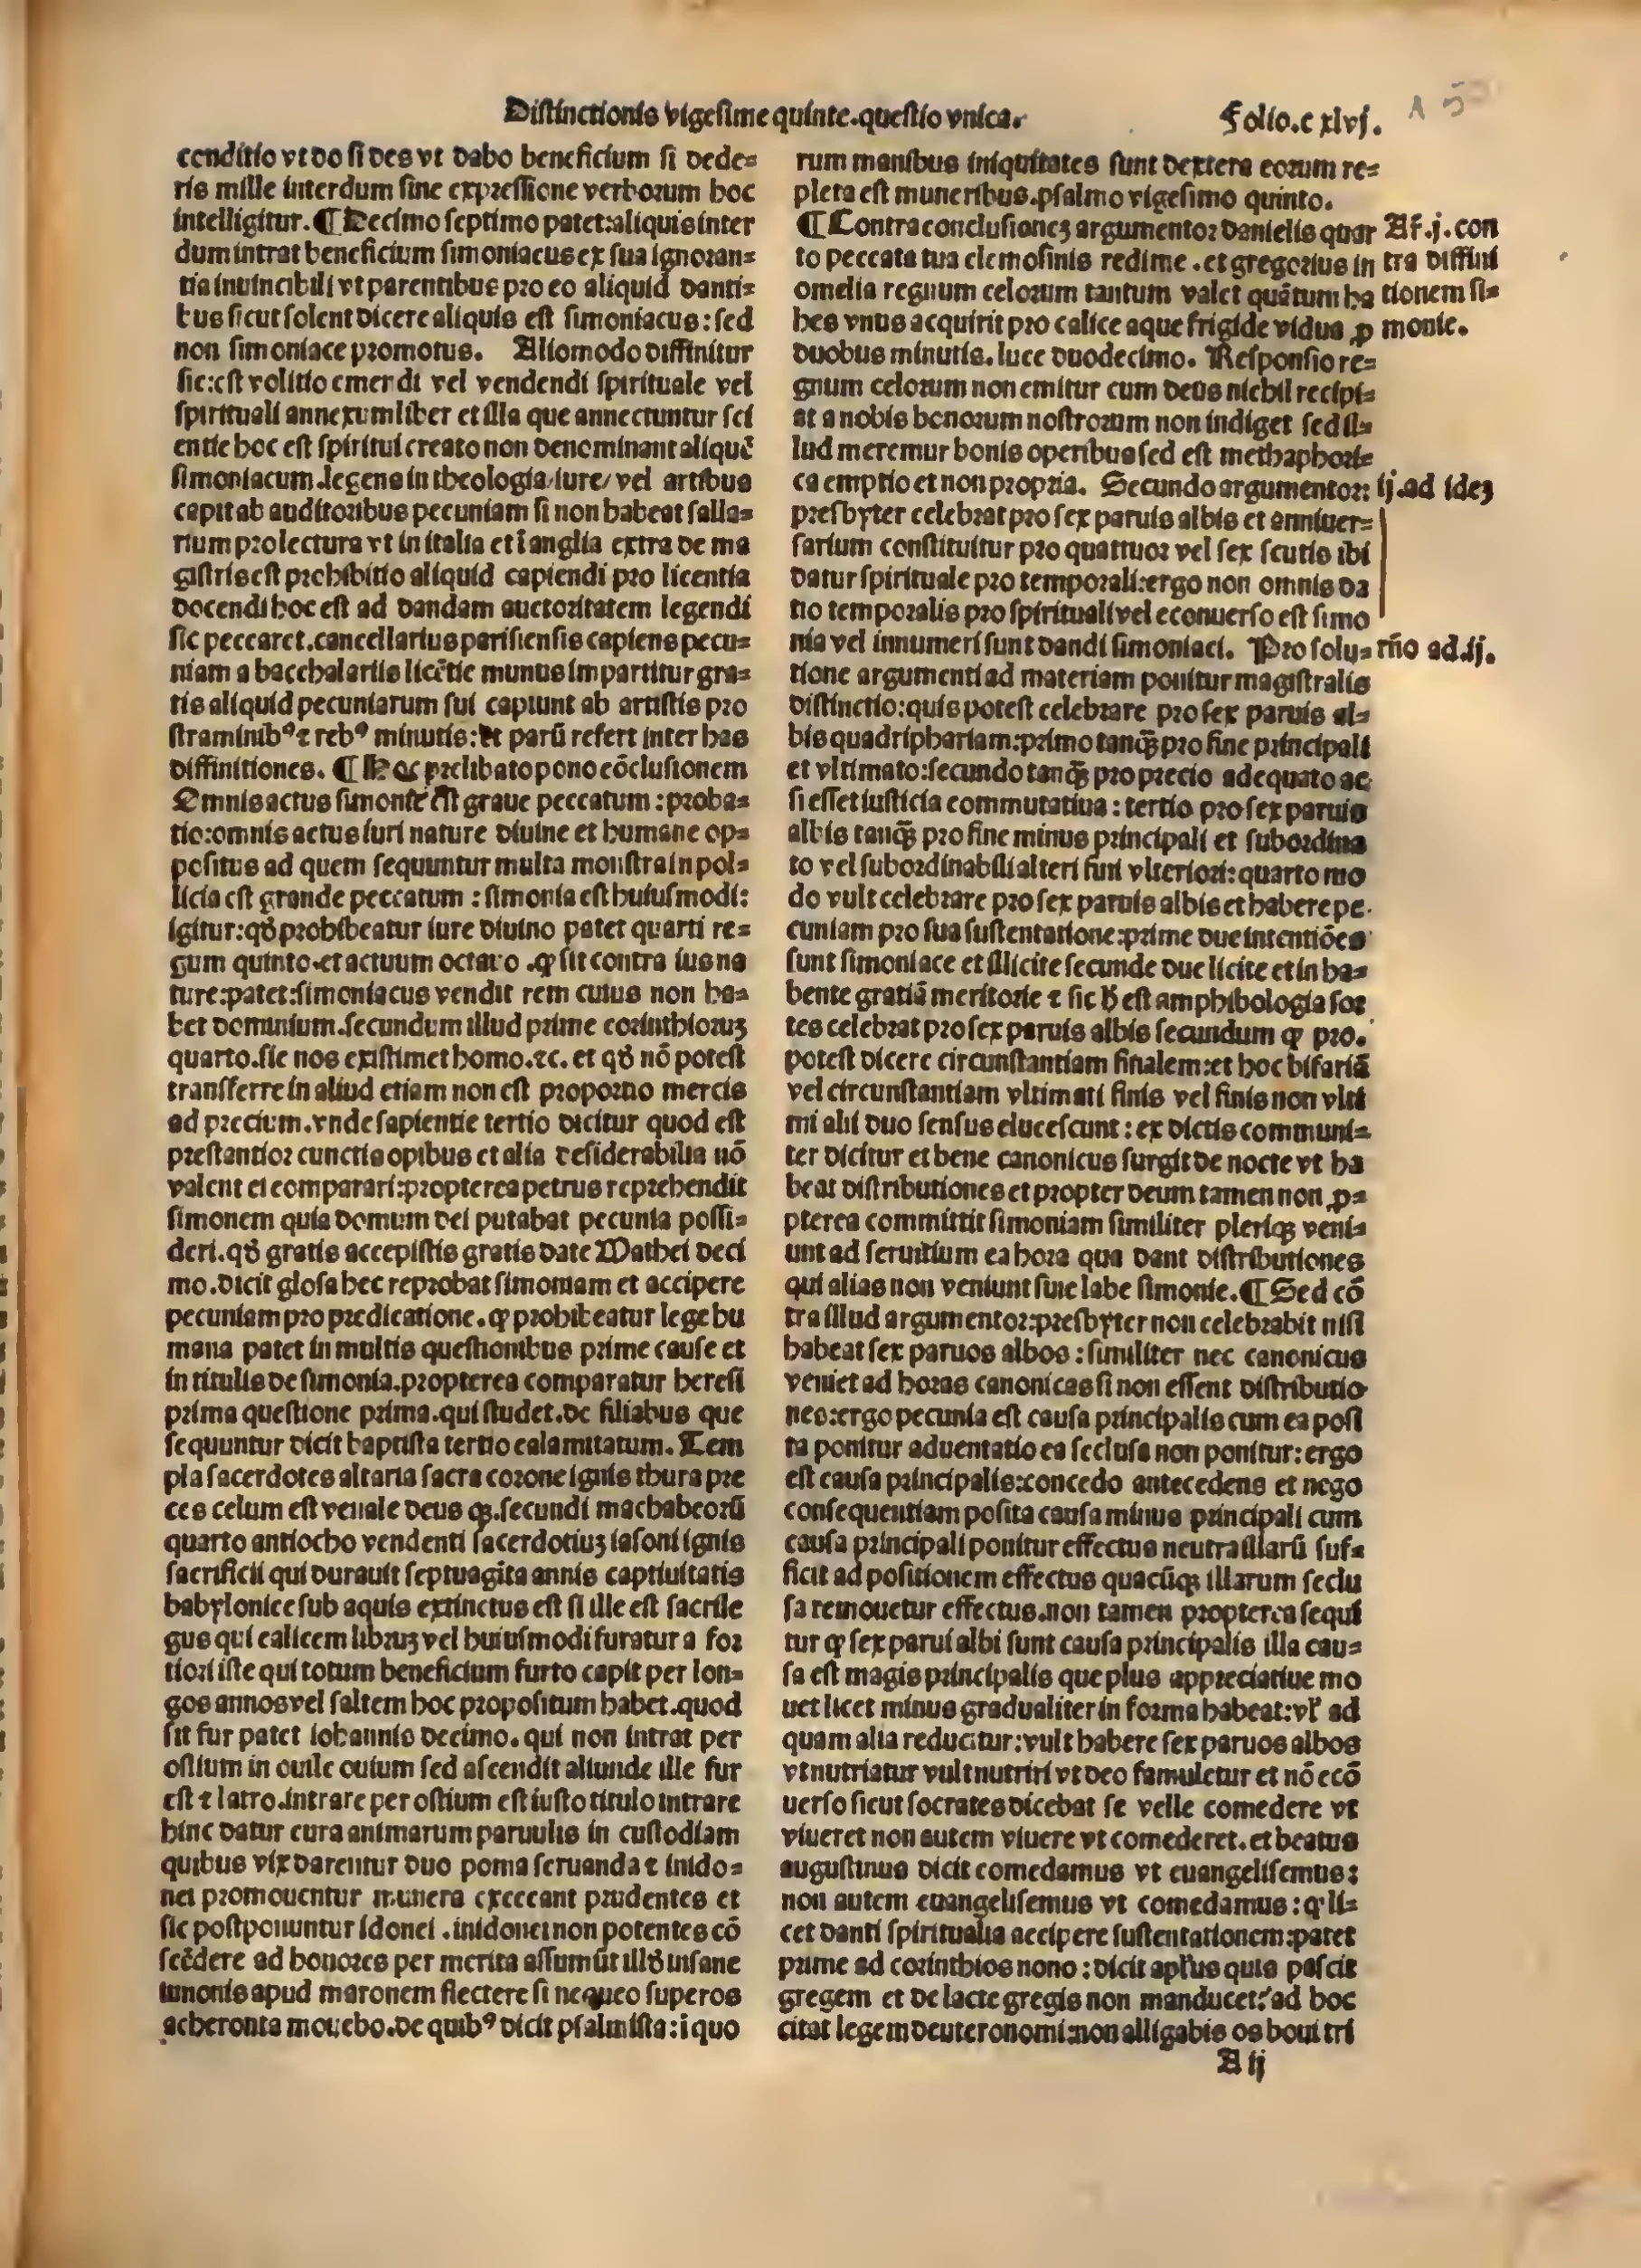 Distinctionis vigesime quinte.questio vnica.
Folio.c xlvj.
conditio vt do si des vt dabo beneficium si dede-
ris mille interdum sine expressione verborum hoc
intelligitur. ¶ Decimo septimo patet:aliquis inter
dum intrat beneficium simoniacus ex sua ignoran-
tia inuincibili vt parentibus pro eo aliquid danti-
bus sicut solent dicere aliquis est simoniacus: sed
non simoniace promotus. Aliomodo diffinitur
sic:est volitio emendi vel vendendi spirituale vel
spirituali annexum liber et illa que annectuntur sci
entie hoc est spiritui creato non denominant aliquē
simoniacum.legens in theologia/iure/ vel artibus
capit ab auditoribus pecuniam si non habeat salla-
rium pro lectura vt in italia et ī anglia extra de ma
gistris est prohibitio aliquid capiendi pro licentia
docendi hoc est ad dandam auctoritatem legendi
sic peccaret.cancellarius parisiensis capiens pecu-
niam a bacchalariis licētie munus impartitur gra-
tis aliquid pecuniarum sui capiunt ab artistis pro
straminibꝰ ⁊ rebꝰ minutis: Et parū refert inter has
diffinitiones. ¶ Hoc prelibato pono cōclusionem
Omnis actus simonie est graue peccatum : proba-
tio:omnis actus iuri nature diuine et humane op-
positus ad quem sequuntur multa monstra in pol-
licia est grande peccatum : simonia est huiusmodi:
igitur:qđ prohibeatur iure diuino patet quarti re-
gum quinto.et actuum octauo .ꝙ sit contra ius na
ture:patet:simoniacus vendit rem cuius non ha-
bet dominium.secundum illud prime corinthioruꝫ
quarto.sic nos existimet homo.⁊c. et qđ nō potest
transferre in aliud etiam non est proportio mercis
ad precium.vnde sapientie tertio dicitur quod est
prestantior cunctis opibus et alia desiderabilia nō
valent ei comparari:propterea petrus reprehendit
simonem quia domum dei putabat pecunia possi-
deri.qđ gratis accepistis gratis date Mathei deci
mo.dicit glosa hec reprobat simoniam et accipere
pecuniam pro predicatione.ꝙ prohibeatur lege hu
mana patet in multis questionibus prime cause et
in titulis de simonia.propterea comparatur heresi
prima questione prima.qui studet.de filiabus que
sequuntur dicit baptista tertio calamitatum. Tem
pla sacerdotes altaria sacra corone ignis thura pre
ces celum est venale deus qꝫ.secundi machabeorū
quarto antiocho vendenti sacerdotiuꝫ iasoni ignis
sacrificii qui durauit septuagīta annis captiuitatis
babylonice sub aquis extinctus est si ille est sacrile
gus qui calicem libruꝫ vel huiusmodi furatur a for
tiori iste qui totum beneficium furto capit per lon-
gos annos vel saltem hoc propositum habet.quod
sit fur patet iohannis decimo. qui non intrat per
ostium in ouile ouium sed ascendit aliunde ille fur
est ⁊ latro.intrare per ostium est iusto titulo intrare
hinc datur cura animarum paruulis in custodiam
quibus vix darentur duo poma seruanda ⁊ inido-
nei promouentur munera excecant prudentes et
sic postponuntur idonei .inidonei non potentes cō
scēdere ad honores per merita assumūt illđ insane
iunonis apud maronem flectere si nequeo superos
acheronta mouebo.de quibꝰ dicit psalmista:i quo
rum manibus iniquitates sunt dextera eorum re-
pleta est muneribus.psalmo vigesimo quinto.
¶ Contra conclusioneꝫ argumentor danielis quar
to peccata tua elemosinis redime .et gregorius in
omelia regnum celorum tantum valet quātum ha
bes vnus acquirit pro calice aque frigide vidua ꝓ
duobus minutis.luce duodecimo. Responsio re-
gnum celorum non emitur cum deus nichil recipi-
at a nobis bonorum nostrorum non indiget sed il-
lud meremur bonis operibus sed est methaphori-
ca emptio et non propria. Secundo argumentor:
presbyter celebrat pro sex paruis albis et anniuer-
sarium constituitur pro quattuor vel sex scutis ibi
datur spirituale pro temporali:ergo non omnis da
tio temporalis pro spirituali vel econuerso est simo
nia vel innumeri sunt dandi simoniaci. Pro solu-
tione argumenti ad materiam ponitur magistralis
distinctio:quis potest celebrare pro sex paruis al-
bis quadriphariam:primo tanqꝫ pro fine principali
et vltimato:secundo tanqꝫ pro precio adequato ac
si esset iusticia commutatiua : tertio pro sex paruis
albis tanqꝫ pro fine minus principali et subordina
to vel subordinabili alteri fini vlteriori: quarto mo
do vult celebrare pro sex paruis albis et habere pe-
cuniam pro sua sustentatione:prime due intentiōes
sunt simoniace et illicite secunde due licite et in ha-
bente gratiā meritorie ⁊ sic ħ est amphibologia sor
tes celebrat pro sex paruis albis secundum ꝙ pro.
potest dicere circunstantiam finalem:et hoc bifariā
vel circunstantiam vltimati finis vel finis non vlti
mi alii duo sensus elucescunt : ex dictis communi-
ter dicitur et bene canonicus surgit de nocte vt ha
beat distributiones et propter deum tamen non ꝓ-
pterea committit simoniam similiter pleriqꝫ veni-
unt ad seruitium ea hora qua dant distributiones
qui alias non veniunt sine labe simonie. ¶ Sed cō
tra illud argumentor:presbyter non celebrabit nisi
habeat sex paruos albos : similiter nec canonicus
veniet ad horas canonicas si non essent distributio
nes:ergo pecunia est causa principalis cum ea posi
ta ponitur aduentatio ea seclusa non ponitur: ergo
est causa principalis:concedo antecedens et nego
consequentiam posita causa minus principali cum
causa principali ponitur effectus neutra illarū suf-
ficit ad positionem effectus quacūqꝫ illarum seclu
sa remouetur effectus.non tamen propterea sequi
tur ꝙ sex parui albi sunt causa principalis illa cau-
sa est magis principalis que plus appreciatiue mo
uet licet minus gradualiter in forma habeat:vl' ad
quam alia reducitur:vult habere sex paruos albos
vt nutriatur vult nutriri vt deo famuletur et nō ecō
uerso sicut socrates dicebat se velle comedere vt
viueret non autem viuere vt comederet. et beatus
augustinus dicit comedamus vt euangelisemus:
non autem euangelisemus vt comedamus : q' li-
cet danti spiritualia accipere sustentationem:patet
prime ad corinthios nono : dicit apl'us quis pascit
gregem et de lacte gregis non manducet:ad hoc
citat legem deuteronomi:non alligabis os boui tri
A ij
Ar.j.con
tra diffini
tionem si-
monie.
ij.ad ideꝫ
rñio ad.ij.